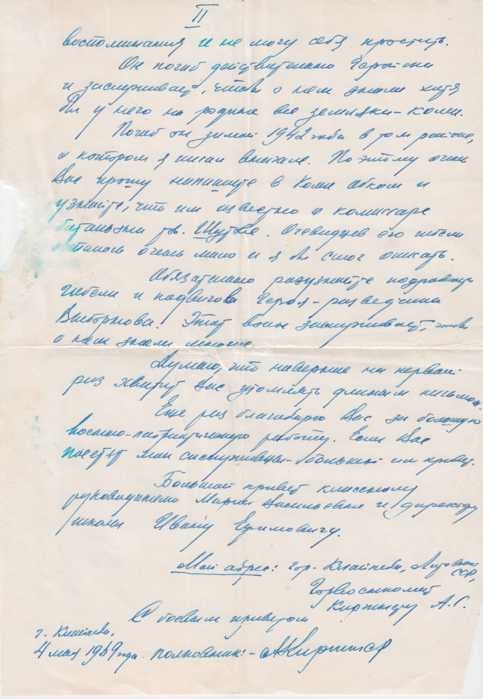 II
воспоминания и не могу себя простить.
Он погиб действительно геройски
и заслуживает, чтобы о нем знали хотя
бы у него на родине все земляки-коми.
Погиб он зимой 1942 года в том районе,
о котором я писал вначале. Поэтому очень
Вас прошу напишите в Коми обком и
узнайте, что им известно о комиссаре
батальона тов. Очевидцев его гибели
осталось очень мало и я бы смог описать.
Обязательно разузнайте подробнее
гибели и подвигов героя-разведчика
Этот воин заслуживает, чтобы
о нем знали многие.
Думаю, что наверное на первый
раз хватит Вас утомлять длинным письмом.
Еще раз благодарю Вас за большую
военно-патриотическую работу. Если Вас
посетят мои сослуживцы - большой им привет.
Большой привет классному
руководителю Марии Васильевне и директору
школы Ивану Ефимовичу.
Мой адрес: гор. Молдавская
ССР,
А.Г.
С боевым приветом
г.
4 мая 1969 года. полковник -